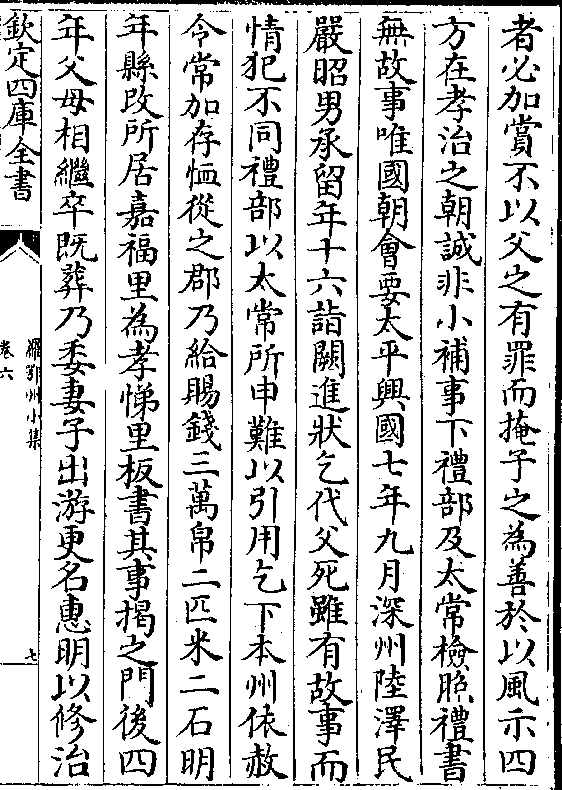 者必加賞不以父之有罪而掩子之為善於以風示四
方在孝治之朝誠非小補事下禮部及太常檢照禮書
無故事唯國朝會要太平興國七年九月深州陸澤民
嚴昭男承留年十六詣闕進狀乞代父死雖有故事而
情犯不同禮部以太常所申難以引用乞下本州依赦
令常加存恤從之郡乃給賜錢三萬帛二匹米二石明
年縣改所居嘉福里為孝悌里板書其事揭之門後四
年父母相繼卒既葬乃委妻子出游更名惠明以修治
欽定四庫全書
羅鄂州小集
卷六
七